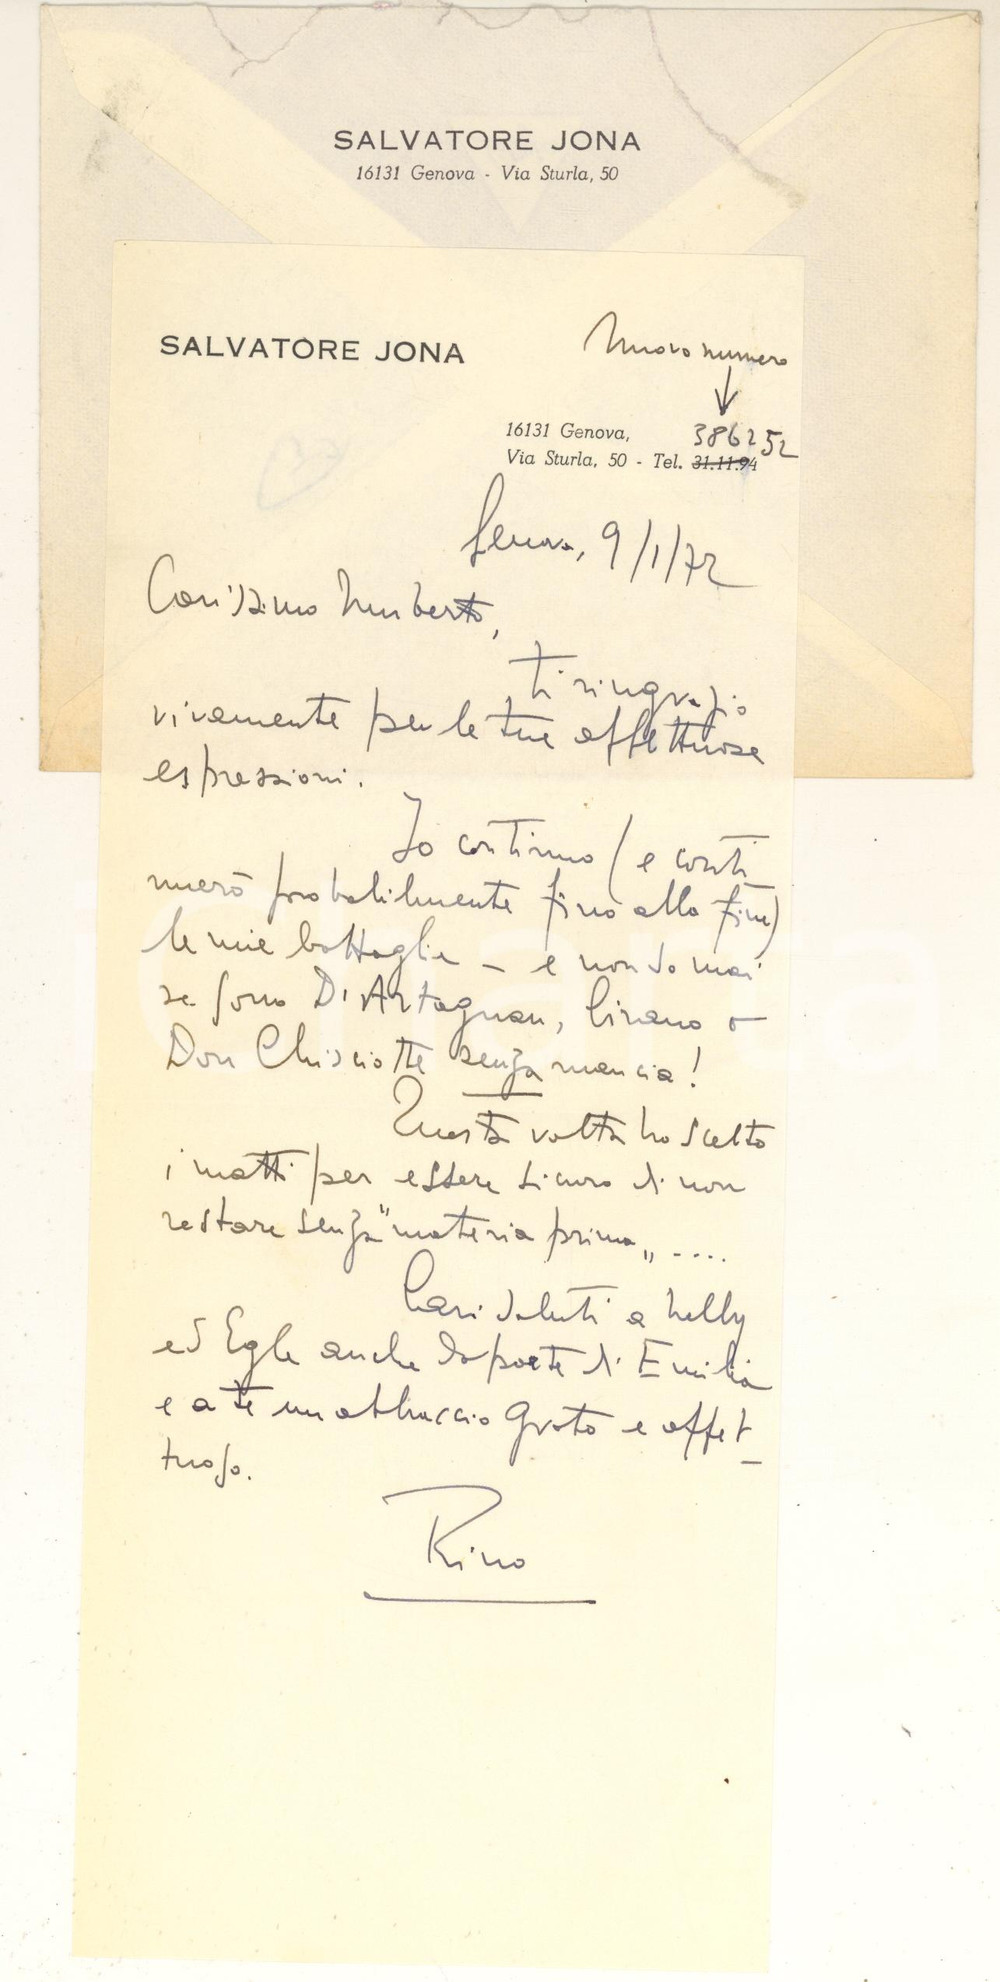 SALVATORE JONA
16131 Genova - Via Sturla, 50
SALVATORE JONA
Nuovo numero
↓
16131 Genova, 386252
Via Sturla, 50 - Tel. 31.11.94
Genova, 9/1/72
Carissimo Umberto,
ti ringrazio
vivamente per le tue affettuose
espressioni.
Io continuo (e conti
nuerò probabilmente fino alla fine)
le mie battaglie - e non so mai
se sono D'Artagnan, Cirano o
Don Chisciotte senza mancia!
Questa volta ho scelto
i matti per essere sicuro di non
restare senza "materia prima" ....
Cari saluti a Nelly
ed Egle anche da parte di Emilia
e a te un abbraccio grato e affet-
tuoso.
Rino